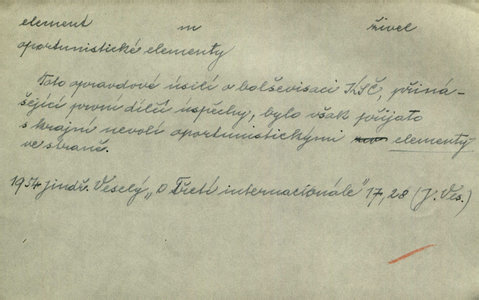 element m živel
oportunistické elementy
Toto opravdové úsilí o bolševisaci KSČ, přiná-
šející první dílčí úspěchy, bylo však přijato
s krajní nevolí oportunistickými elementy
ve straně.
1954 jindř. Veselý „O Třetí internacionále" 17, 28 (J. Ves.)